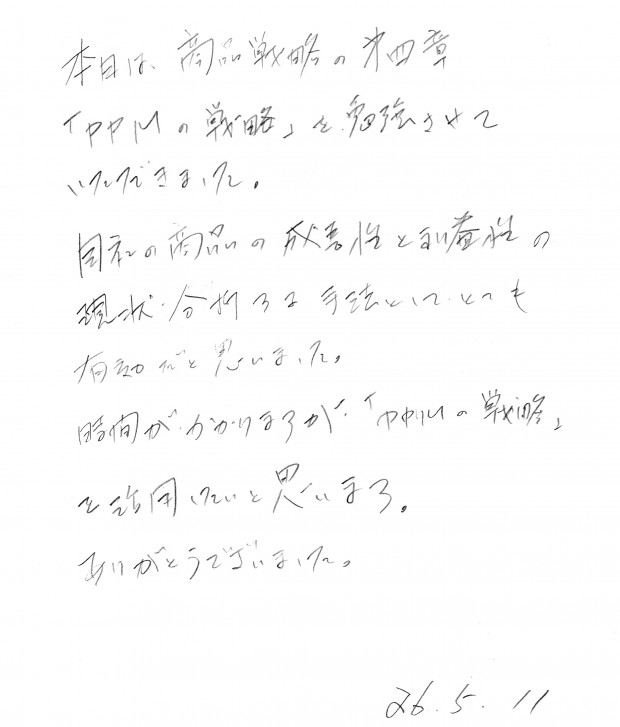 本日は、商品戦略の第四章
「PPMの戦略」を勉強させて
いただきました。
自社の商品の成長性と収益性の
現状分析する手法として、とても
有効だと思いました。
時間がかかりますが、「PPMの戦略」
を活用したいと思います。
ありがとうございました。
26.5.11